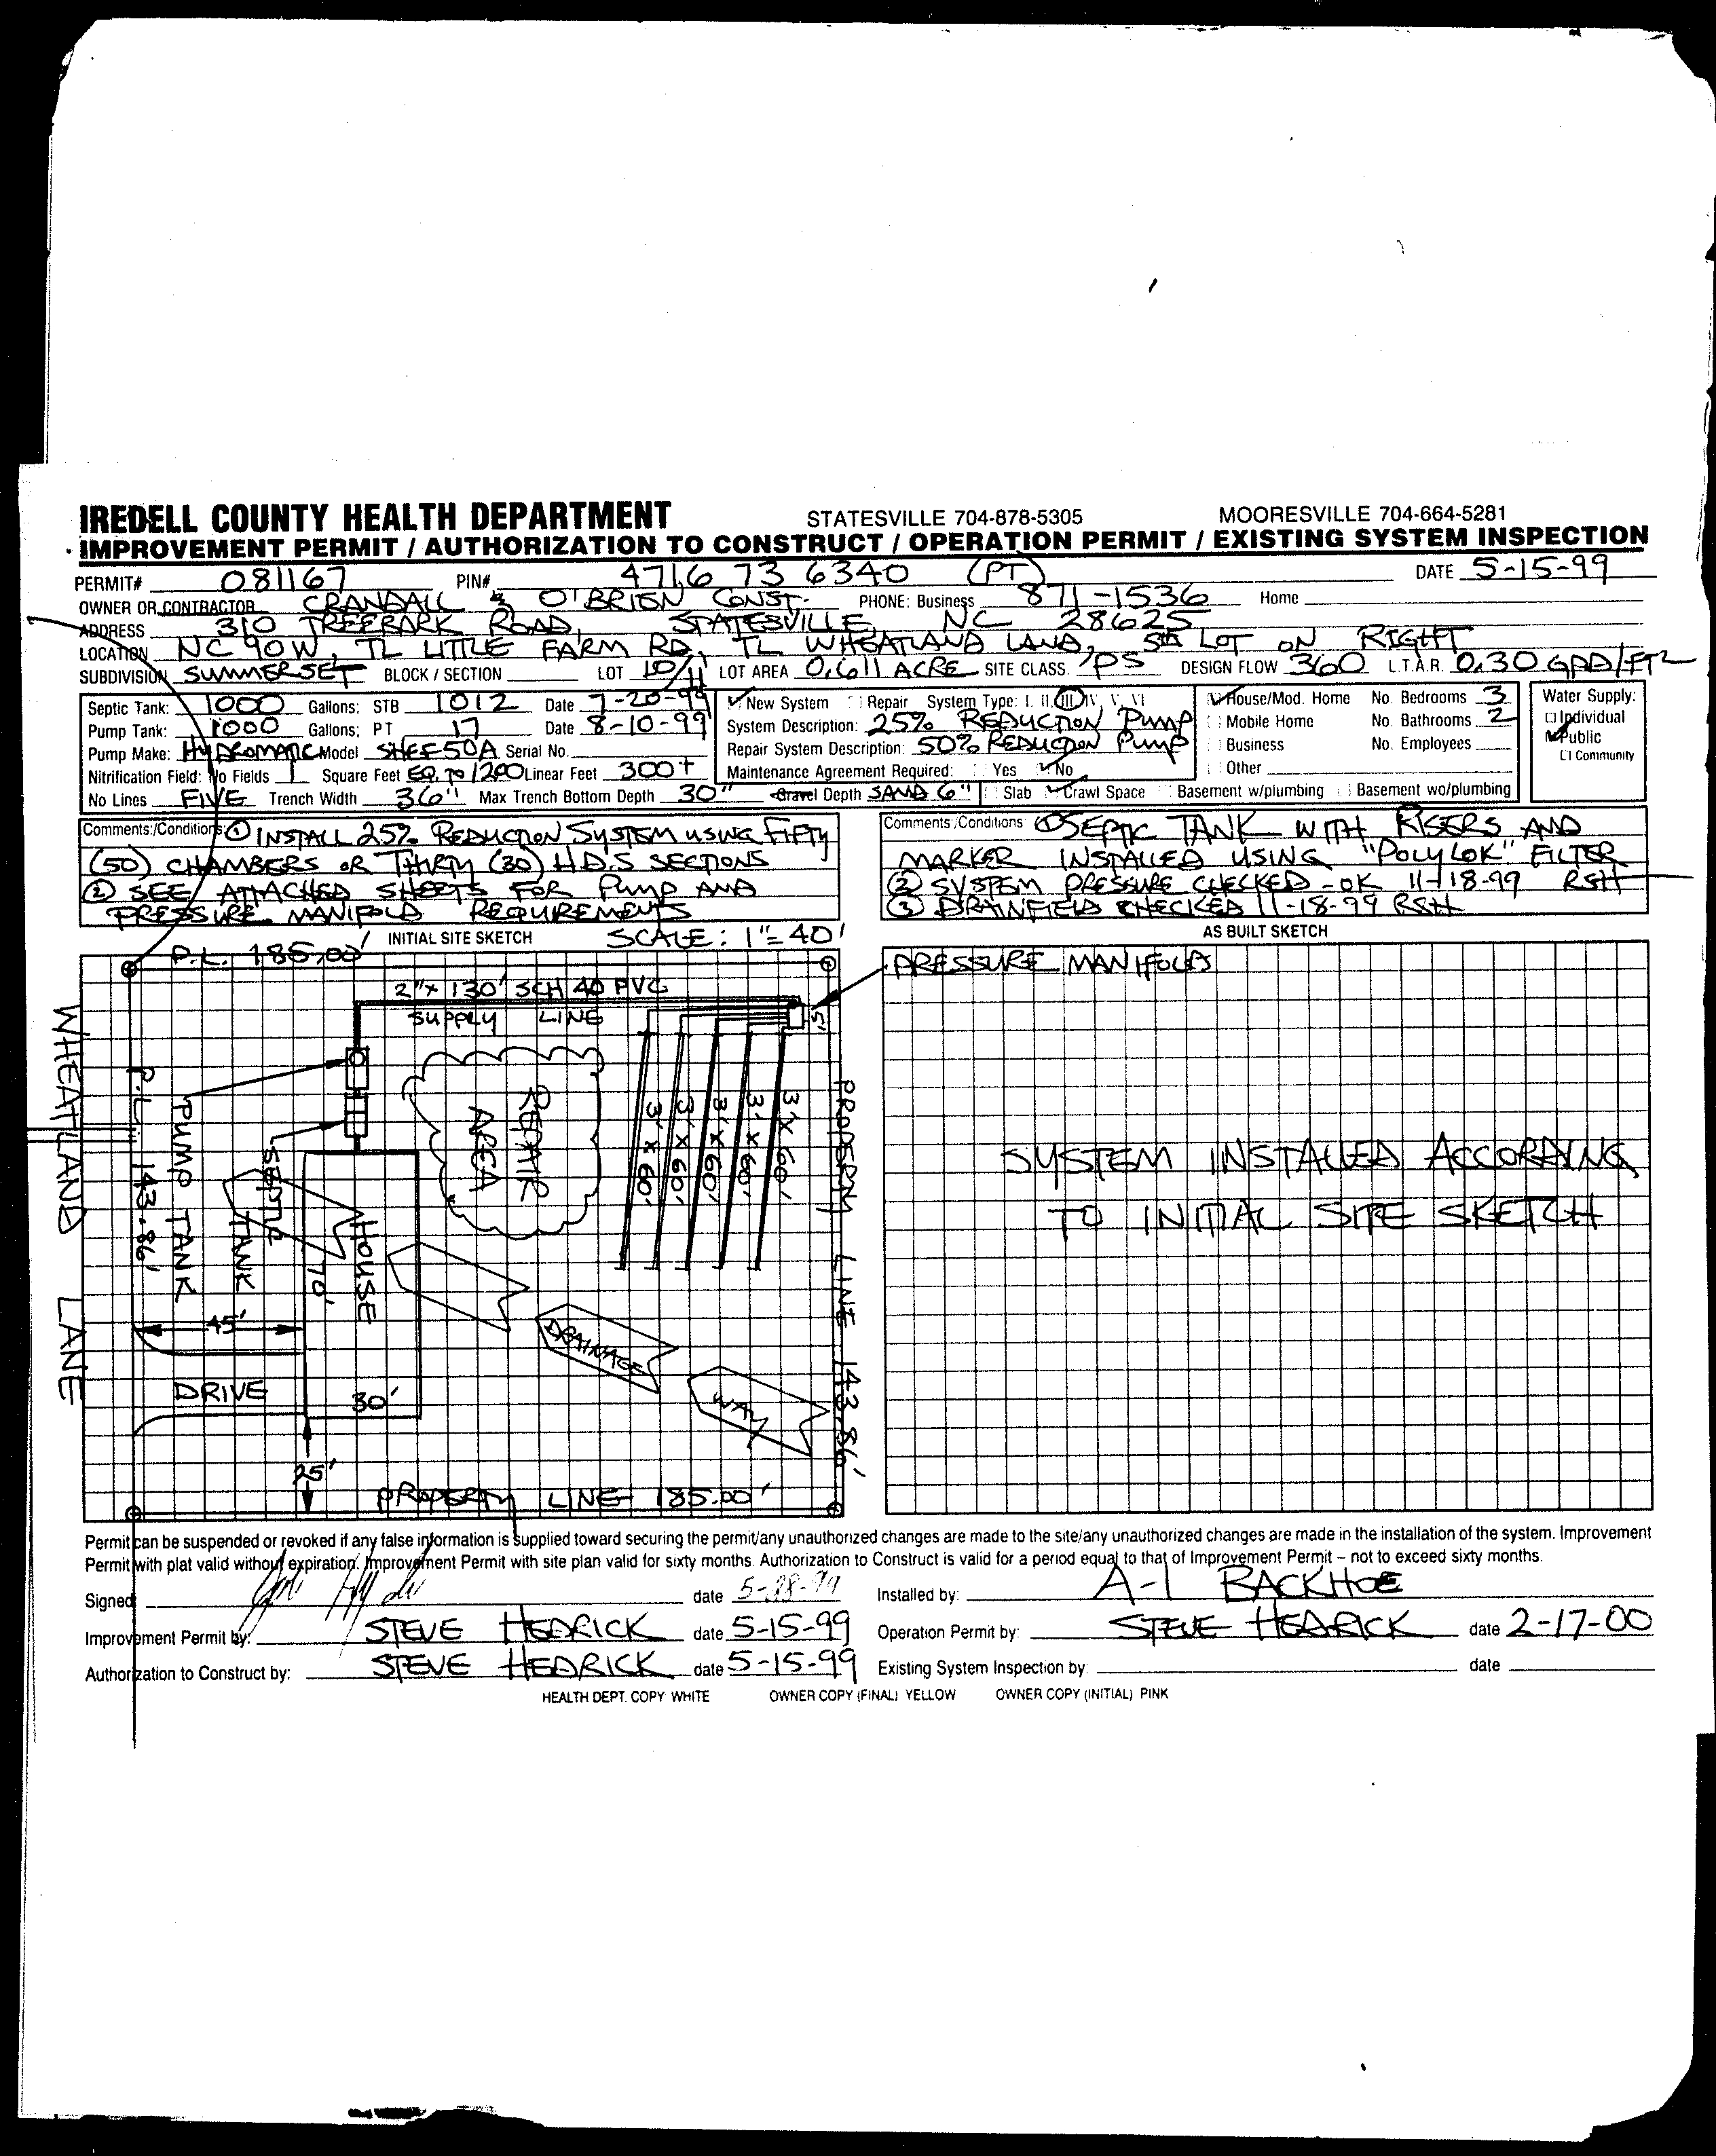 IREDELL COUNTY HEALTH DEPARTMENT STATESVILLE 704-878-5305 MOORESVILLE 704-664-5281
IMPROVEMENT PERMIT / AUTHORIZATION TO CONSTRUCT / OPERATION PERMIT / EXISTING SYSTEM INSPECTION
PERMIT# 081167 PIN# 4716 73 6340 (PT) DATE 5-15-99
OWNER OR CONTRACTOR CRANDALL & O'BRIEN CONST. PHONE: Business 871-1536 Home
ADDRESS 310 TREEBARK ROAD, STATESVILLE, NC 28625
LOCATION NC 90 W, TL LITTLE FARM RD, TL WHEATLAND LAND, 5th LOT ON RIGHT
SUBDIVISION SUMMERSET BLOCK / SECTION LOT 10/11 LOT AREA 0.611 ACRE SITE CLASS. PS DESIGN FLOW 360 L.T.A.R. 0.30 GPD/FT2
Septic Tank: 1000 Gallons; STB 1012 Date 7-20-99 New System Repair System Type: I. II. III IV, V, VI House/Mod. Home No. Bedrooms 3 Water Supply:
Pump Tank: 1000 Gallons; PT 17 Date 8-10-99 System Description: 25% REDUCTION PUMP Mobile Home No. Bathrooms 2 Individual
Pump Make: HYDROMATIC Model SHEF50A Serial No. Repair System Description: 50% REDUCTION PUMP Business No. Employees Public
Nitrification Field: No Fields 1 Square Feet EQ. TO 1200 Linear Feet 300+ Maintenance Agreement Required: Yes No Other Community
No Lines FIVE Trench Width 36" Max Trench Bottom Depth 30" Gravel Depth SAND 6" Slab Crawl Space Basement w/plumbing Basement wo/plumbing
Comments:/Conditions: ① INSTALL 25% REDUCTION SYSTEM USING FIFTY
(50) CHAMBERS OR THIRTY (30) H.D.S SECTIONS
② SEE ATTACHED SHEETS FOR PUMP AND
PRESSURE MANIFOLD REQUIREMENTS
Comments:/Conditions ① SEPTIC TANK WITH RISERS AND
MARKER INSTALLED USING "POLYLOK" FILTER
② SYSTEM PRESSURE CHECKED - OK 11-18-99 RSH
③ DRAINFIELD CHECKED 11-18-99 RSH
INITIAL SITE SKETCH SCALE: 1"=40'
AS BUILT SKETCH
P.L. 185.00'
PRESSURE MANIFOLD
2" x 130' SCH 40 PVC
SUPPLY LINE
5'
WHEATLAND LANE
P.L. 143.86'
PUMP TANK
SEPTIC TANK
HOUSE
70'
REPAIR AREA
3' x 60'
3' x 60'
3' x 60'
3' x 60'
3' x 60'
PROPERTY LINE 143.86'
SYSTEM INSTALLED ACCORDING
TO INITIAL SITE SKETCH
45'
DRAINAGE
WAY
DRIVE
30'
25'
PROPERTY LINE 185.00'
Permit can be suspended or revoked if any false information is supplied toward securing the permit/any unauthorized changes are made to the site/any unauthorized changes are made in the installation of the system. Improvement
Permit with plat valid without expiration. Improvement Permit with site plan valid for sixty months. Authorization to Construct is valid for a period equal to that of Improvement Permit – not to exceed sixty months.
Signed date 5-28-99 Installed by: A-1 BACKHOE
Improvement Permit by: STEVE HEDRICK date 5-15-99 Operation Permit by: STEVE HEDRICK date 2-17-00
Authorization to Construct by: STEVE HEDRICK date 5-15-99 Existing System Inspection by: date
HEALTH DEPT. COPY WHITE OWNER COPY (FINAL) YELLOW OWNER COPY (INITIAL) PINK